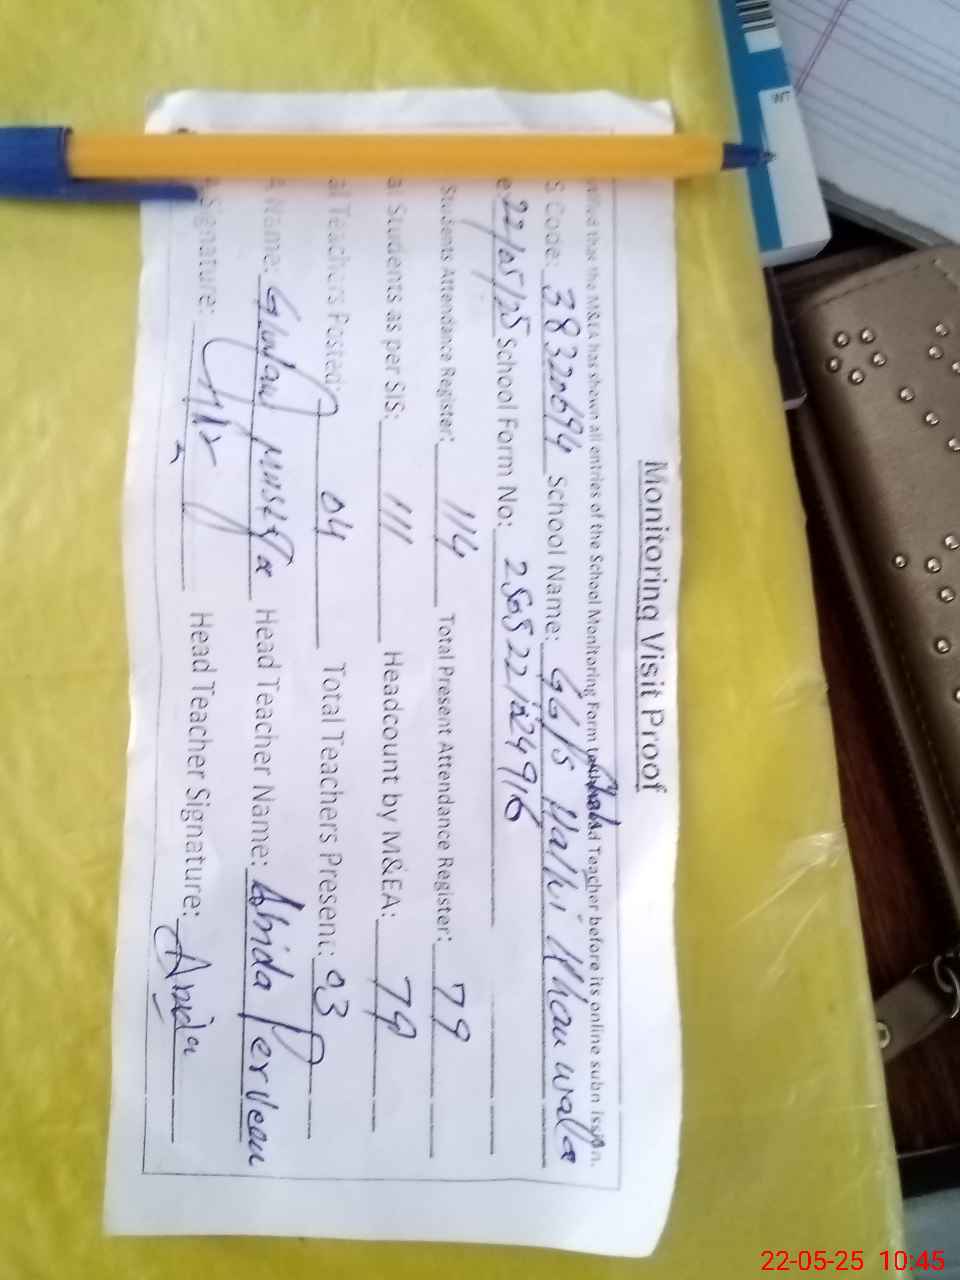 Monitoring Visit Proof
that the M&EA has shown all entries of the School Monitoring Form to Teacher before its online submission.
S Code: 38320694 School Name: GG/PS Walhi
e: 22/05/25 School Form No: 2505221224916
Students Attendance Register: 114 Total Present Attendance Register: 79
al Students as per SIS: 111 Headcount by M&EA: 79
al Teachers Posted: 04 Total Teachers Present: 03
A Name: Ghulam Mustafa Head Teacher Name: Abida Perveen
Signature: Head Teacher Signature: Abida
LM
22-05-25 10:45